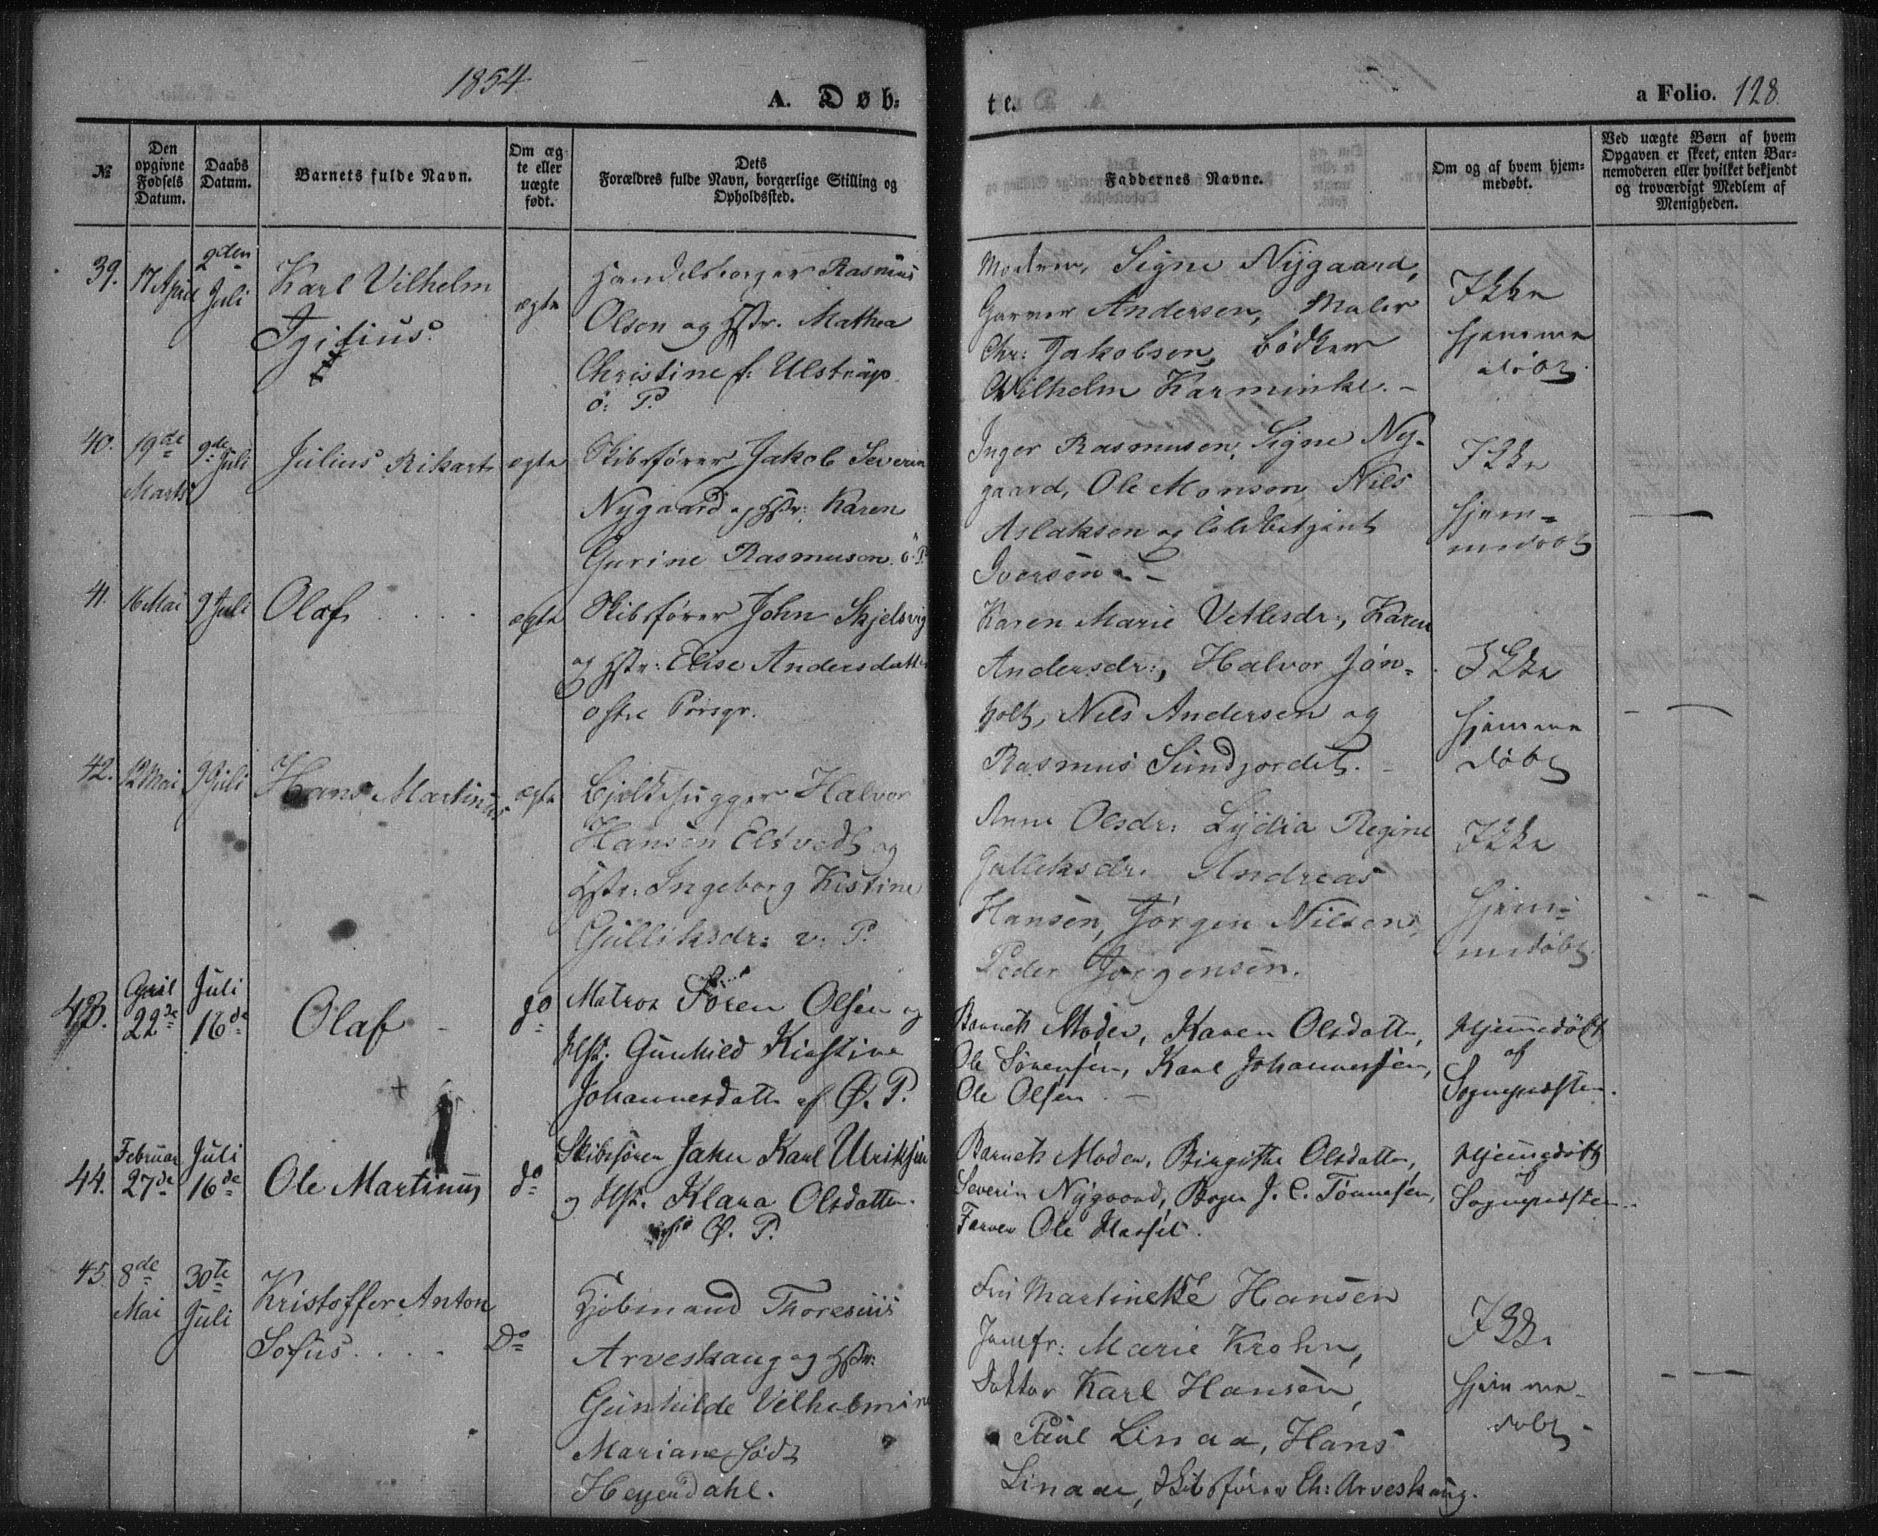 1854
A. Døb-
te.
a Folio. 128.
№
Den opgivne Fødsels Datum.
Daabs Datum.
Barnets fulde Navn.
Om æg te eller uægte født.
Dets
Forældres fulde Navn, borgerlige Stilling og Opholdssted.
Faddernes Navne.
Om og af hvem hjem-
medøbt.
Ved uægte Børn af hvem
Opgaven er skeet, enten Bar-
nemoderen eller hvilket bekjendt
og troværdigt Medlem af
Menigheden.
39. 17 April 2den Juli
Karl Vilhelm
ægte
Handelsborger Rasmus
Olsen og Hstr. Mathea
Christine f: Ulstrup
ö: P.
Moderen, Signe Nygaard,
Garver Andersen, Maler
Chr: Jakobsen, bödker
Wilhelm Karminke. -
Ikke
hjemme
döbt.
40. 19de Marts 9de Juli
Julius Rikart
ægte
Skibsfører Jakob Severin
Nygaard og Hstr: Karen
Gurine Rasmusen. ö. P.
Inger Rasmusen, Signe Ny-
gaard, Ole Monson Nils
Aslaksen og
Iversen. -
Ikke
hjem-
medöbt
41. 16 Mai 9 Juli
Olaf
ægte
Skibsfører John Skjelsvig
og Hstr: Elise Andersdatter
østre Porsgr.
Karen Marie Vetlesdr:, Karen
Andersdr:, Halvor Jön-
holt, Nils Andersen og
Rasmus Sundjordet. -
Ikke
hjemme
döbt
42. 12 Mai 9 Juli
Hans Martinus
ægte
Bjelkehugger Halvor
Hansen Elsvedt og
Hstr: Ingeborg Kistine
Gulliksdr: v: P.
Anne Olsdr: Lydia Regine
Gulleksdr: Andreas
Hansen, Jörgen Nilsen,
Peder Jorgensen.
Ikke
hjem-
medöbt
43. April 22de Juli 16de
Olaf
do
Matros Sören Olsen og
Hst. Gunhild Kirstine
Johannesdatter af Ø. P.
Barnets Moder, Karen Olsdatter,
Ole Sørensen, Karl Johannessen,
Ole Olsen. -
Hjemmedøbt
af
Sognepræsten.
44. Februar 27de Juli 16de
Ole Martinus
do
Skibsfører Karl Ulriksen
og Hst. Klara Olsdatter.
Ø. P.
Barnets Moder, Birgithe Olsdatter,
Severin Nygaard, J. C. Tönnesen,
Farver Ole Hassel.
Hjemmedøbt
af
Sognepræsten.
45. 8de Mai 30te Juli
Kristoffer Anton
Sofus.
Do
Kjöbmand Thoresius
Arveskaug og Hstr:
Gunhilde Vilhelmine
Mariane født
Heyerdahl.
Fru Martinekke Hansen
Jomfr: Marie Krohn,
Doktor Karl Hansen,
Paul Linaa, Hans
Linaae, Skibsfører Ch: Arveskaug.
Ikke
hjemme-
dobt